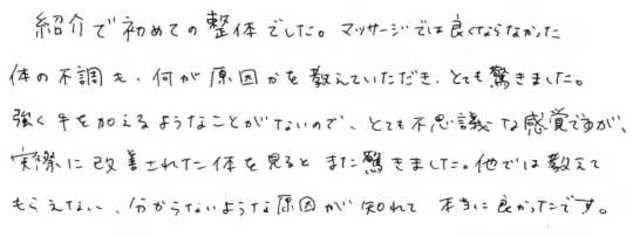 紹介で初めての整体でした。マッサージでは良くならなかった
体の不調も、何が原因かを教えていただき、とても驚きました。
強く手を加えるようなことがないので、とても不思議な感覚ですが、
実際に改善された体を見るとまた驚きました。他では教えて
もらえない、分からないような原因が知れて本当に良かったです。